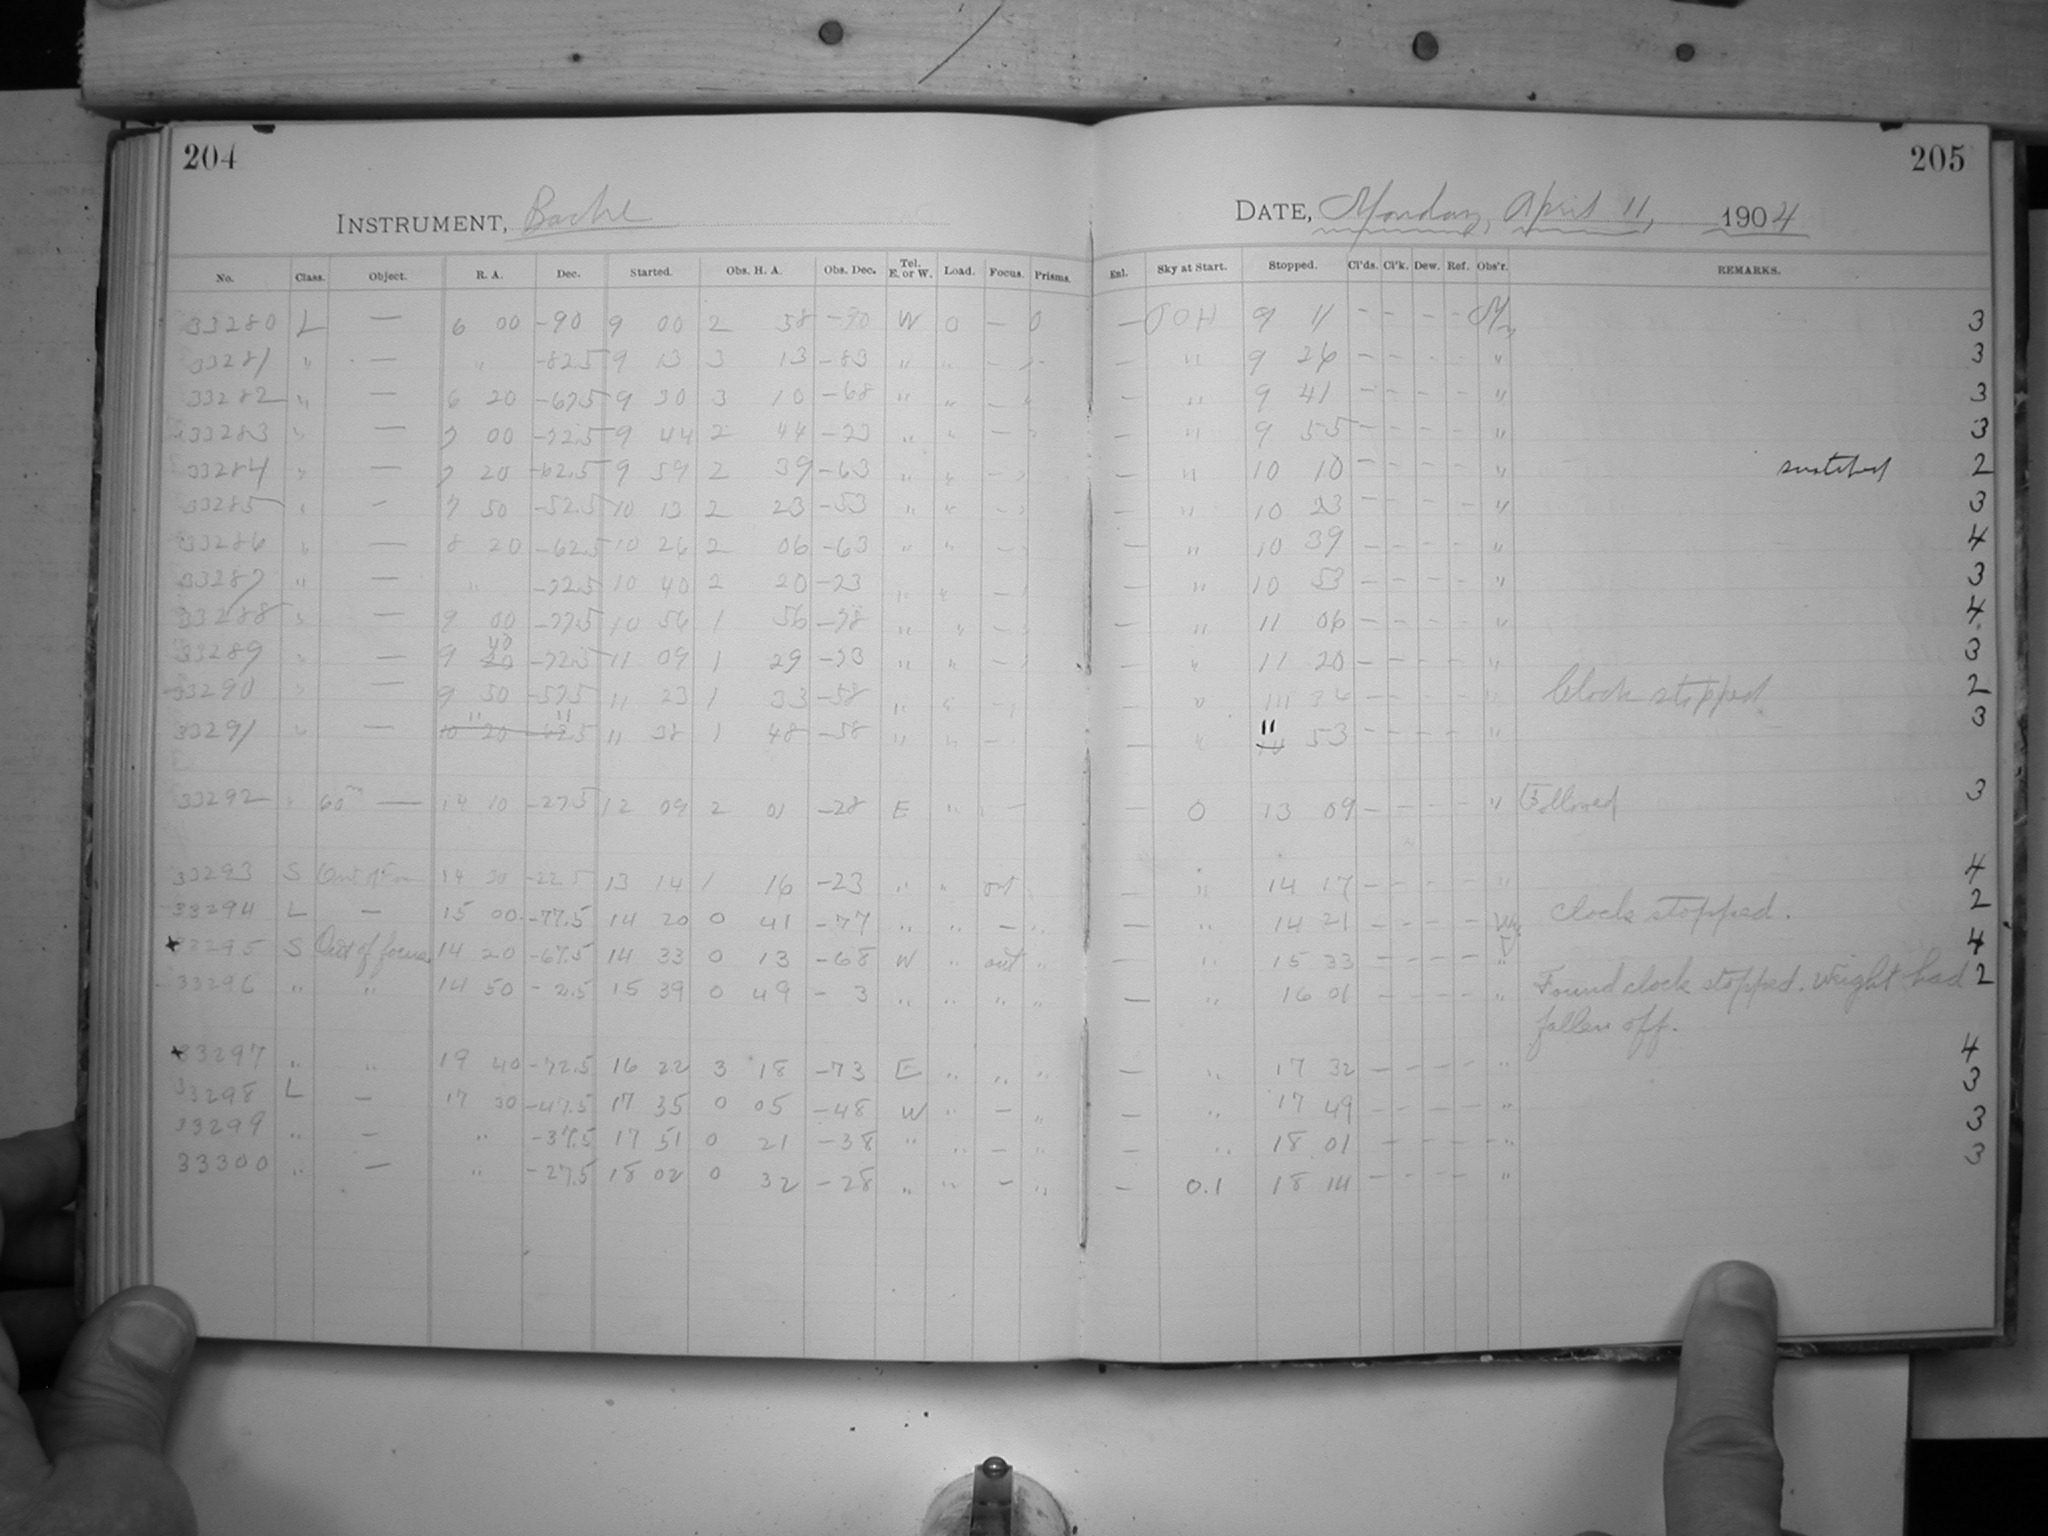 204
205
INSTRUMENT, Bache
DATE, Monday, April 11, 1904
No. Class. Object. R. A. Dec. Started. Obs. H. A. Obs. Dec. Tel. E. or W. Load. Focus. Prisms. Enl. Sky at Start. Stopped. Cl'ds. Cl'k. Dew. Ref. Obs'r. REMARKS.
33280 L — 6 00 -90 9 00 2 58 -90 W 0 — 0 — 9 11 - - - - 3
33281 " — " -82.5 9 13 3 13 -83 " " — — " 9 26 - - - - " 3
33282 " — 6 20 -67.5 9 30 3 10 -68 " " — " — " 9 41 - - - - " 3
33283 " — 7 00 -72.5 9 44 2 44 -73 " " — " — " 9 55 - - - - " 3
33284 " — 7 20 -62.5 9 59 2 39 -63 " " — " — " 10 10 - - - - " 2
33285 " — 7 50 -52.5 10 13 2 23 -53 " " — " — " 10 23 - - - - " 3
33286 " — 8 20 -62.5 10 26 2 06 -63 " " — " — " 10 39 - - - - " 4
33287 " — " -72.5 10 40 2 20 -73 " " — " — " 10 53 - - - - " 3
33288 " — 9 00 -77.5 10 56 1 56 -78 " " — " — " 11 06 - - - - " 4
33289 " — 9 40 -72.5 11 09 1 29 -73 " " — " — " 11 20 - - - - " 3
33290 " — 9 50 -57.5 11 23 1 33 -58 " " — " — " 11 34 - - - - " Clock stopped 2
33291 " — " " 11 38 1 48 -58 " " — — " 11 53 - - - - " 3
33292 " 60m — 14 10 -27.5 12 09 2 01 -28 E " — — 0 13 09 - - - - " Followed 3
33293 S 14 30 -22.5 13 14 1 16 -23 " " out — " 14 17 - - - - " 4
33294 L — 15 00 -77.5 14 20 0 41 -77 " " — " — " 14 21 - - - - clock stopped. 2
33295 S Out of focus 14 20 -67.5 14 33 0 13 -68 W " out " — " 15 33 - - - - " 4
33296 " " 14 50 -2.5 15 39 0 49 -3 " " " " — " 16 01 - - - - " Found clock stopped. Weight had 2
fallen off.
33297 " " 19 40 -72.5 16 22 3 18 -73 E " " " — " 17 32 - - - - " 4
33298 L — 17 30 -47.5 17 35 0 05 -48 W " — " — " 17 49 - - - - " 3
33299 " — " -37.5 17 51 0 21 -38 " " — " — " 18 01 - - - - " 3
33300 " — " -27.5 18 02 0 32 -28 " " — " — 0.1 18 14 - - - - " 3